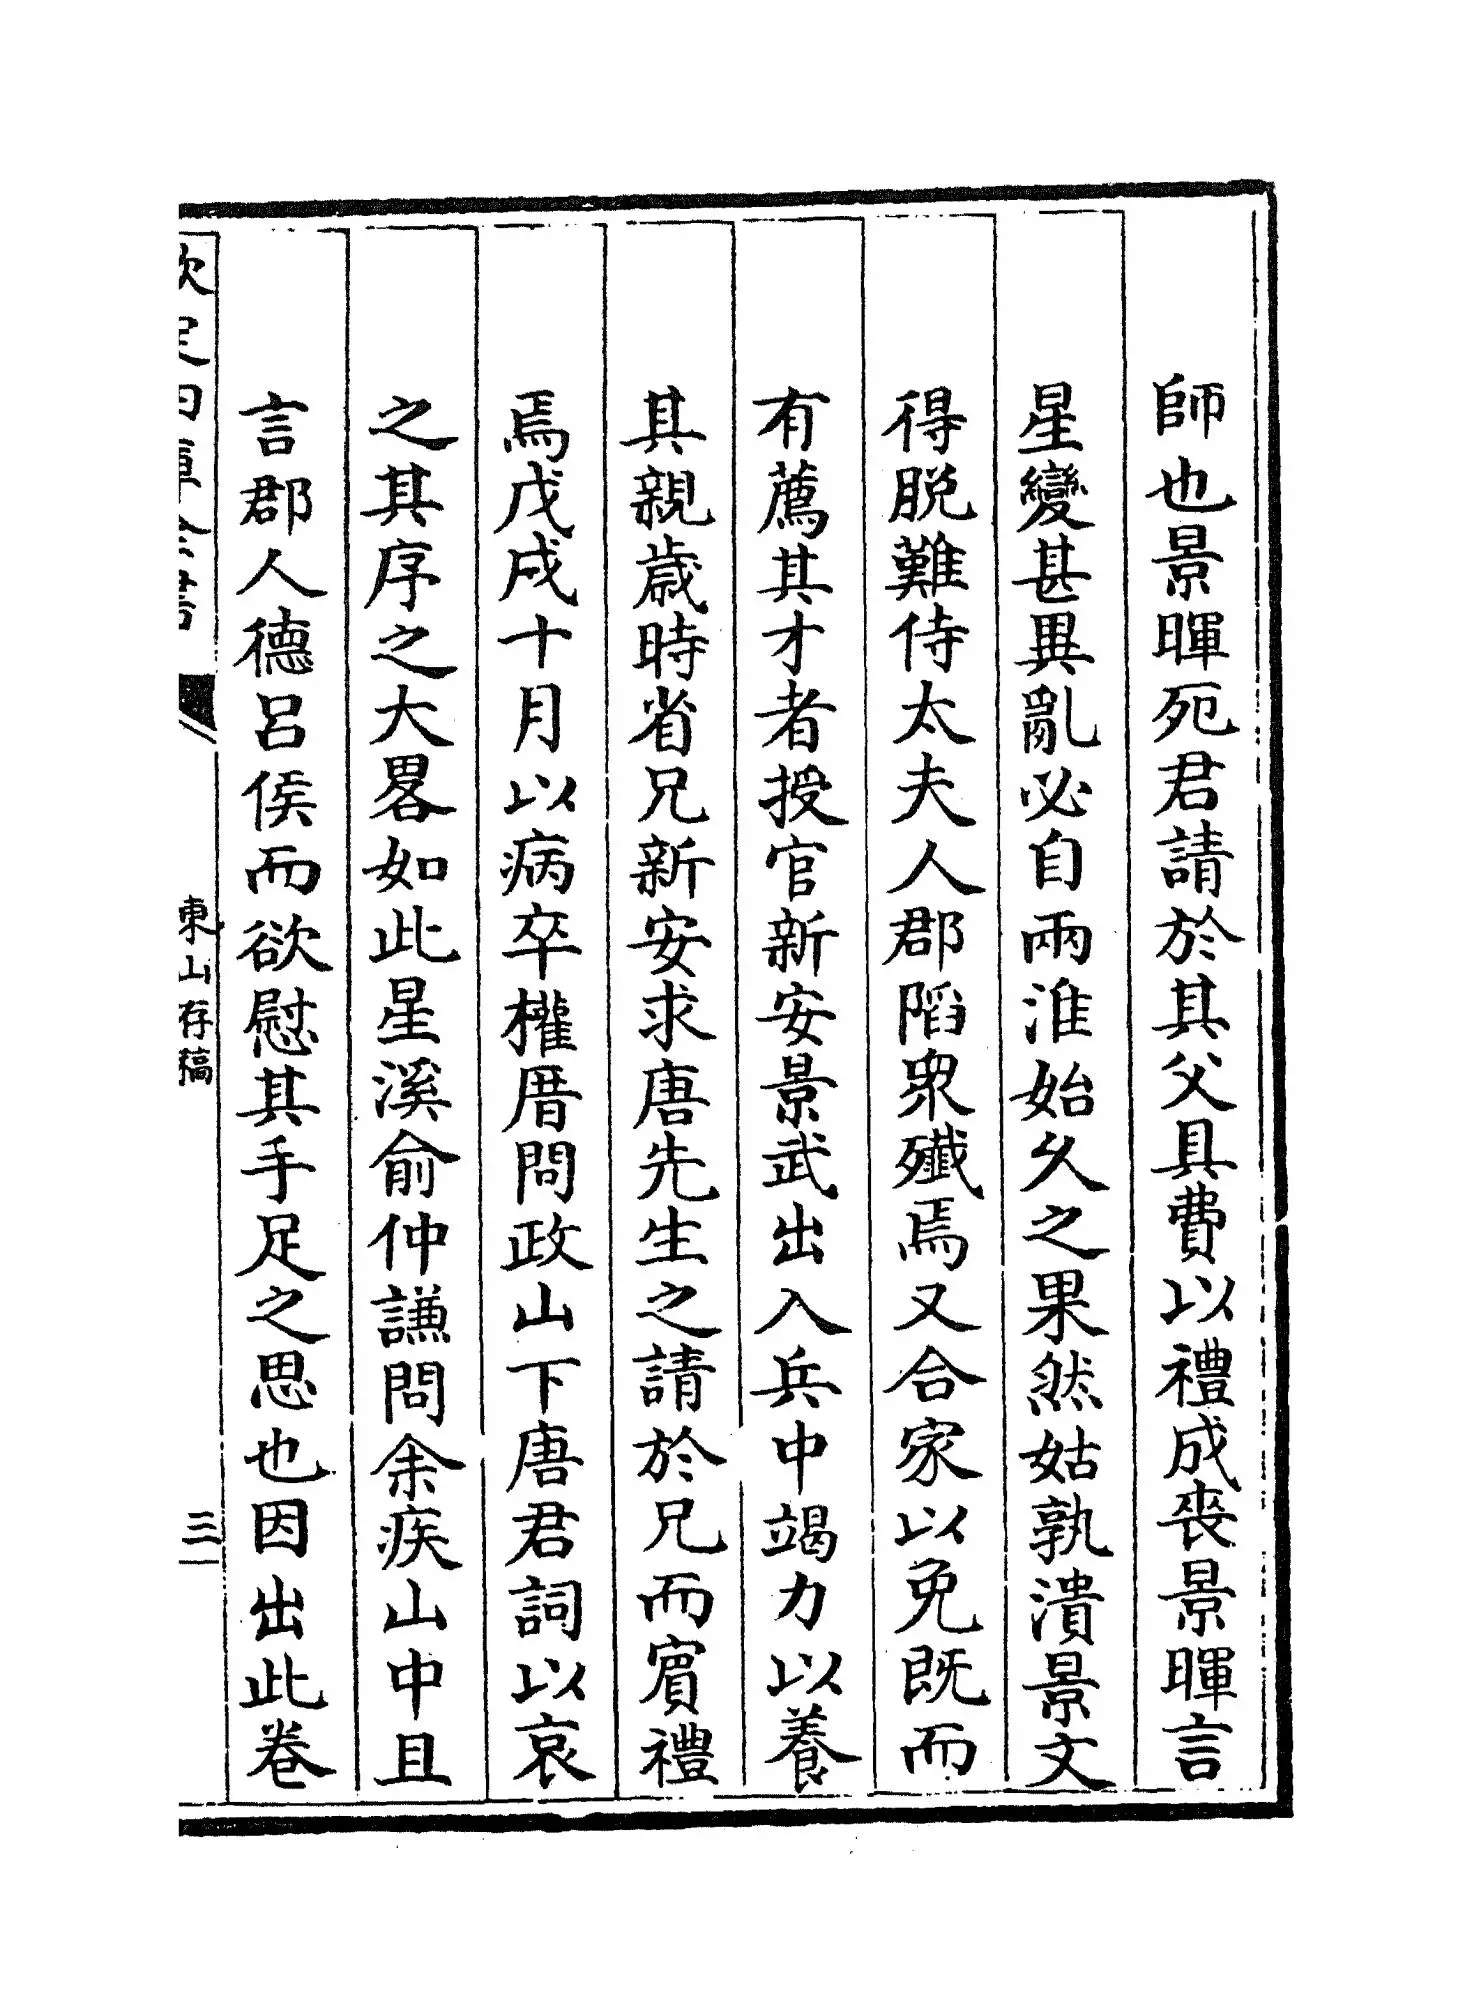 師也景暉死君請於其父具費以禮成喪景暉言
星變甚異亂必自兩淮始乆之果然姑孰潰景文
得脫難侍太夫人郡陷衆殱焉又合家以免既而
有薦其才者授官新安景武出入兵中竭力以養
其親歲時省兄新安求唐先生之請於兄而賔禮
焉戊戌十月以病卒權厝問政山下唐君詞以哀
之其序之大畧如此星溪俞仲謙問余疾山中且
言郡人德呂侯而欲慰其手足之思也因出此卷
欽定四庫全書
東山存稿
三